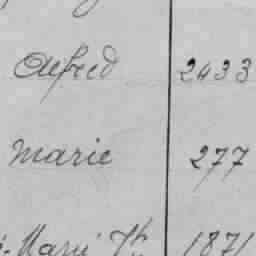 Alfred 2433
Marie 277
Marie Th 1871